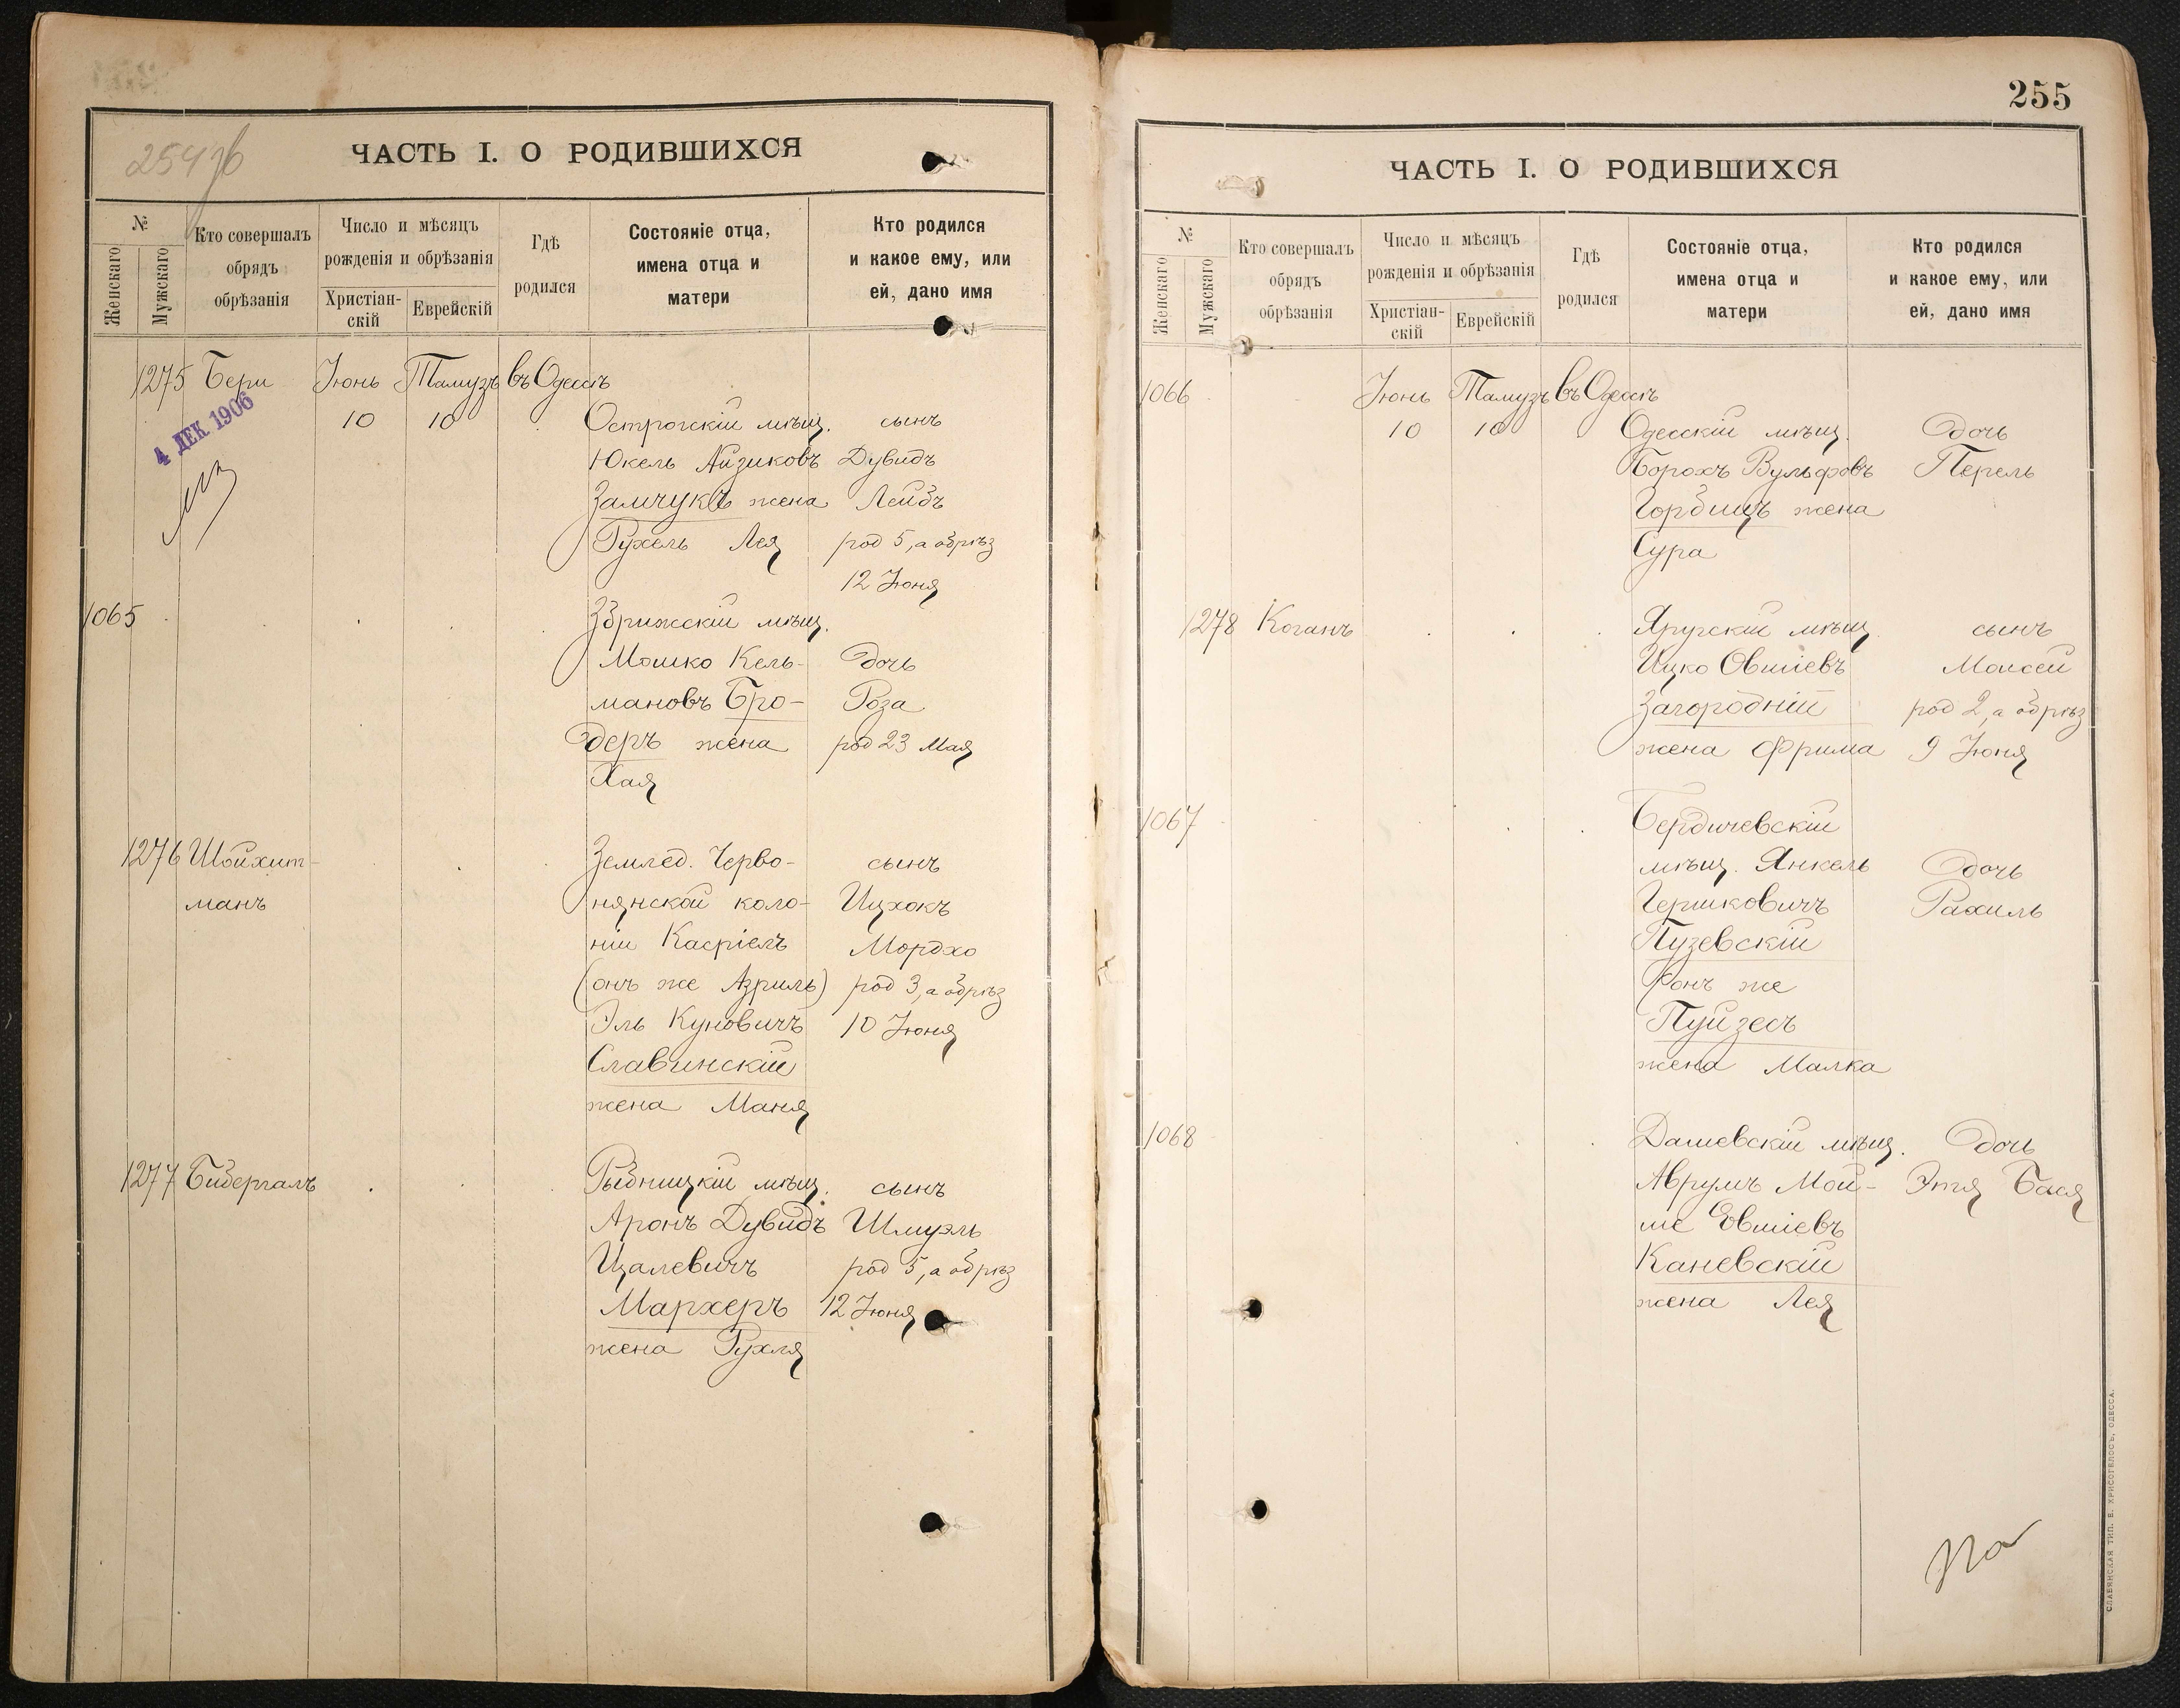 254 об
ЧАСТЬ I. О РОДИВШИХСЯ
№
Женскаго
Мужскаго
Кто совершалъ
обрядъ
обрѣзанія
Число и мѣсяцъ
рожденія и обрѣзанія
Христіан-
скій
Еврейскій
Гдѣ
родился
Состояніе отца,
имена отца и
матери
Кто родился
и какое ему, или
ей, дано имя
1275 Бери Іюнь Тамузъ въ Одессѣ
4 ДЕК 1906
10 10 Острогскій мѣщ. сынъ
Юкель Айзиковъ Дувидъ
Замчукъ жена Лейбъ
Рухель Лея род 5, а обрѣз
12 Іюня
1065 Збрижскій мѣщ.
Мошко Кель- дочь
мановъ Бро- Роза
деръ жена род 23 Мая
Хая
1276 Шойхит- Землед. Черво- сынъ
манъ нянской коло- Ицхокъ
ніи Касріелъ Мордхо
(онъ же Азриль) род 3, а обрѣз
Эль Куновичъ 10 Іюня
Славинскій
жена Маня
1277 Бидергалъ Рыбницкій мѣщ. сынъ
Аронъ Дувидъ Шмуэль
Цалевичъ род 5, а обрѣз
Мархеръ 12 Іюня
жена Рухля
255
ЧАСТЬ I. О РОДИВШИХСЯ
№
Женскаго
Мужскаго
Кто совершалъ
обрядъ
обрѣзанія
Число и мѣсяцъ
рожденія и обрѣзанія
Христіан-
скій
Еврейскій
Гдѣ
родился
Состояніе отца,
имена отца и
матери
Кто родился
и какое ему, или
ей, дано имя
1066 Іюнь Тамузъ въ Одессѣ
10 10 Одесскій мѣщ. дочь
Борохъ Вульфовъ Перель
Горбицъ жена
Сура
1278 Коганъ Яругскій мѣщ. сынъ
Ицко Овшіевъ Моисей
Загородній род 2, а обрѣз
жена Фрима 9 Іюня
1067 Бердичевскій
мѣщ. Янкель дочь
Гершковичъ Рахиль
Пузевскій
онъ же
Пуйзесъ
жена Малка
1068 Дашевскій мѣщ. дочь
Аврумъ Мой- Этя Бася
ше Евшіевъ
Каневскій
жена Лея
СЛАВЯНСКАЯ ТИП. Е. ХРИСОГЕЛОСЪ, ОДЕССА.